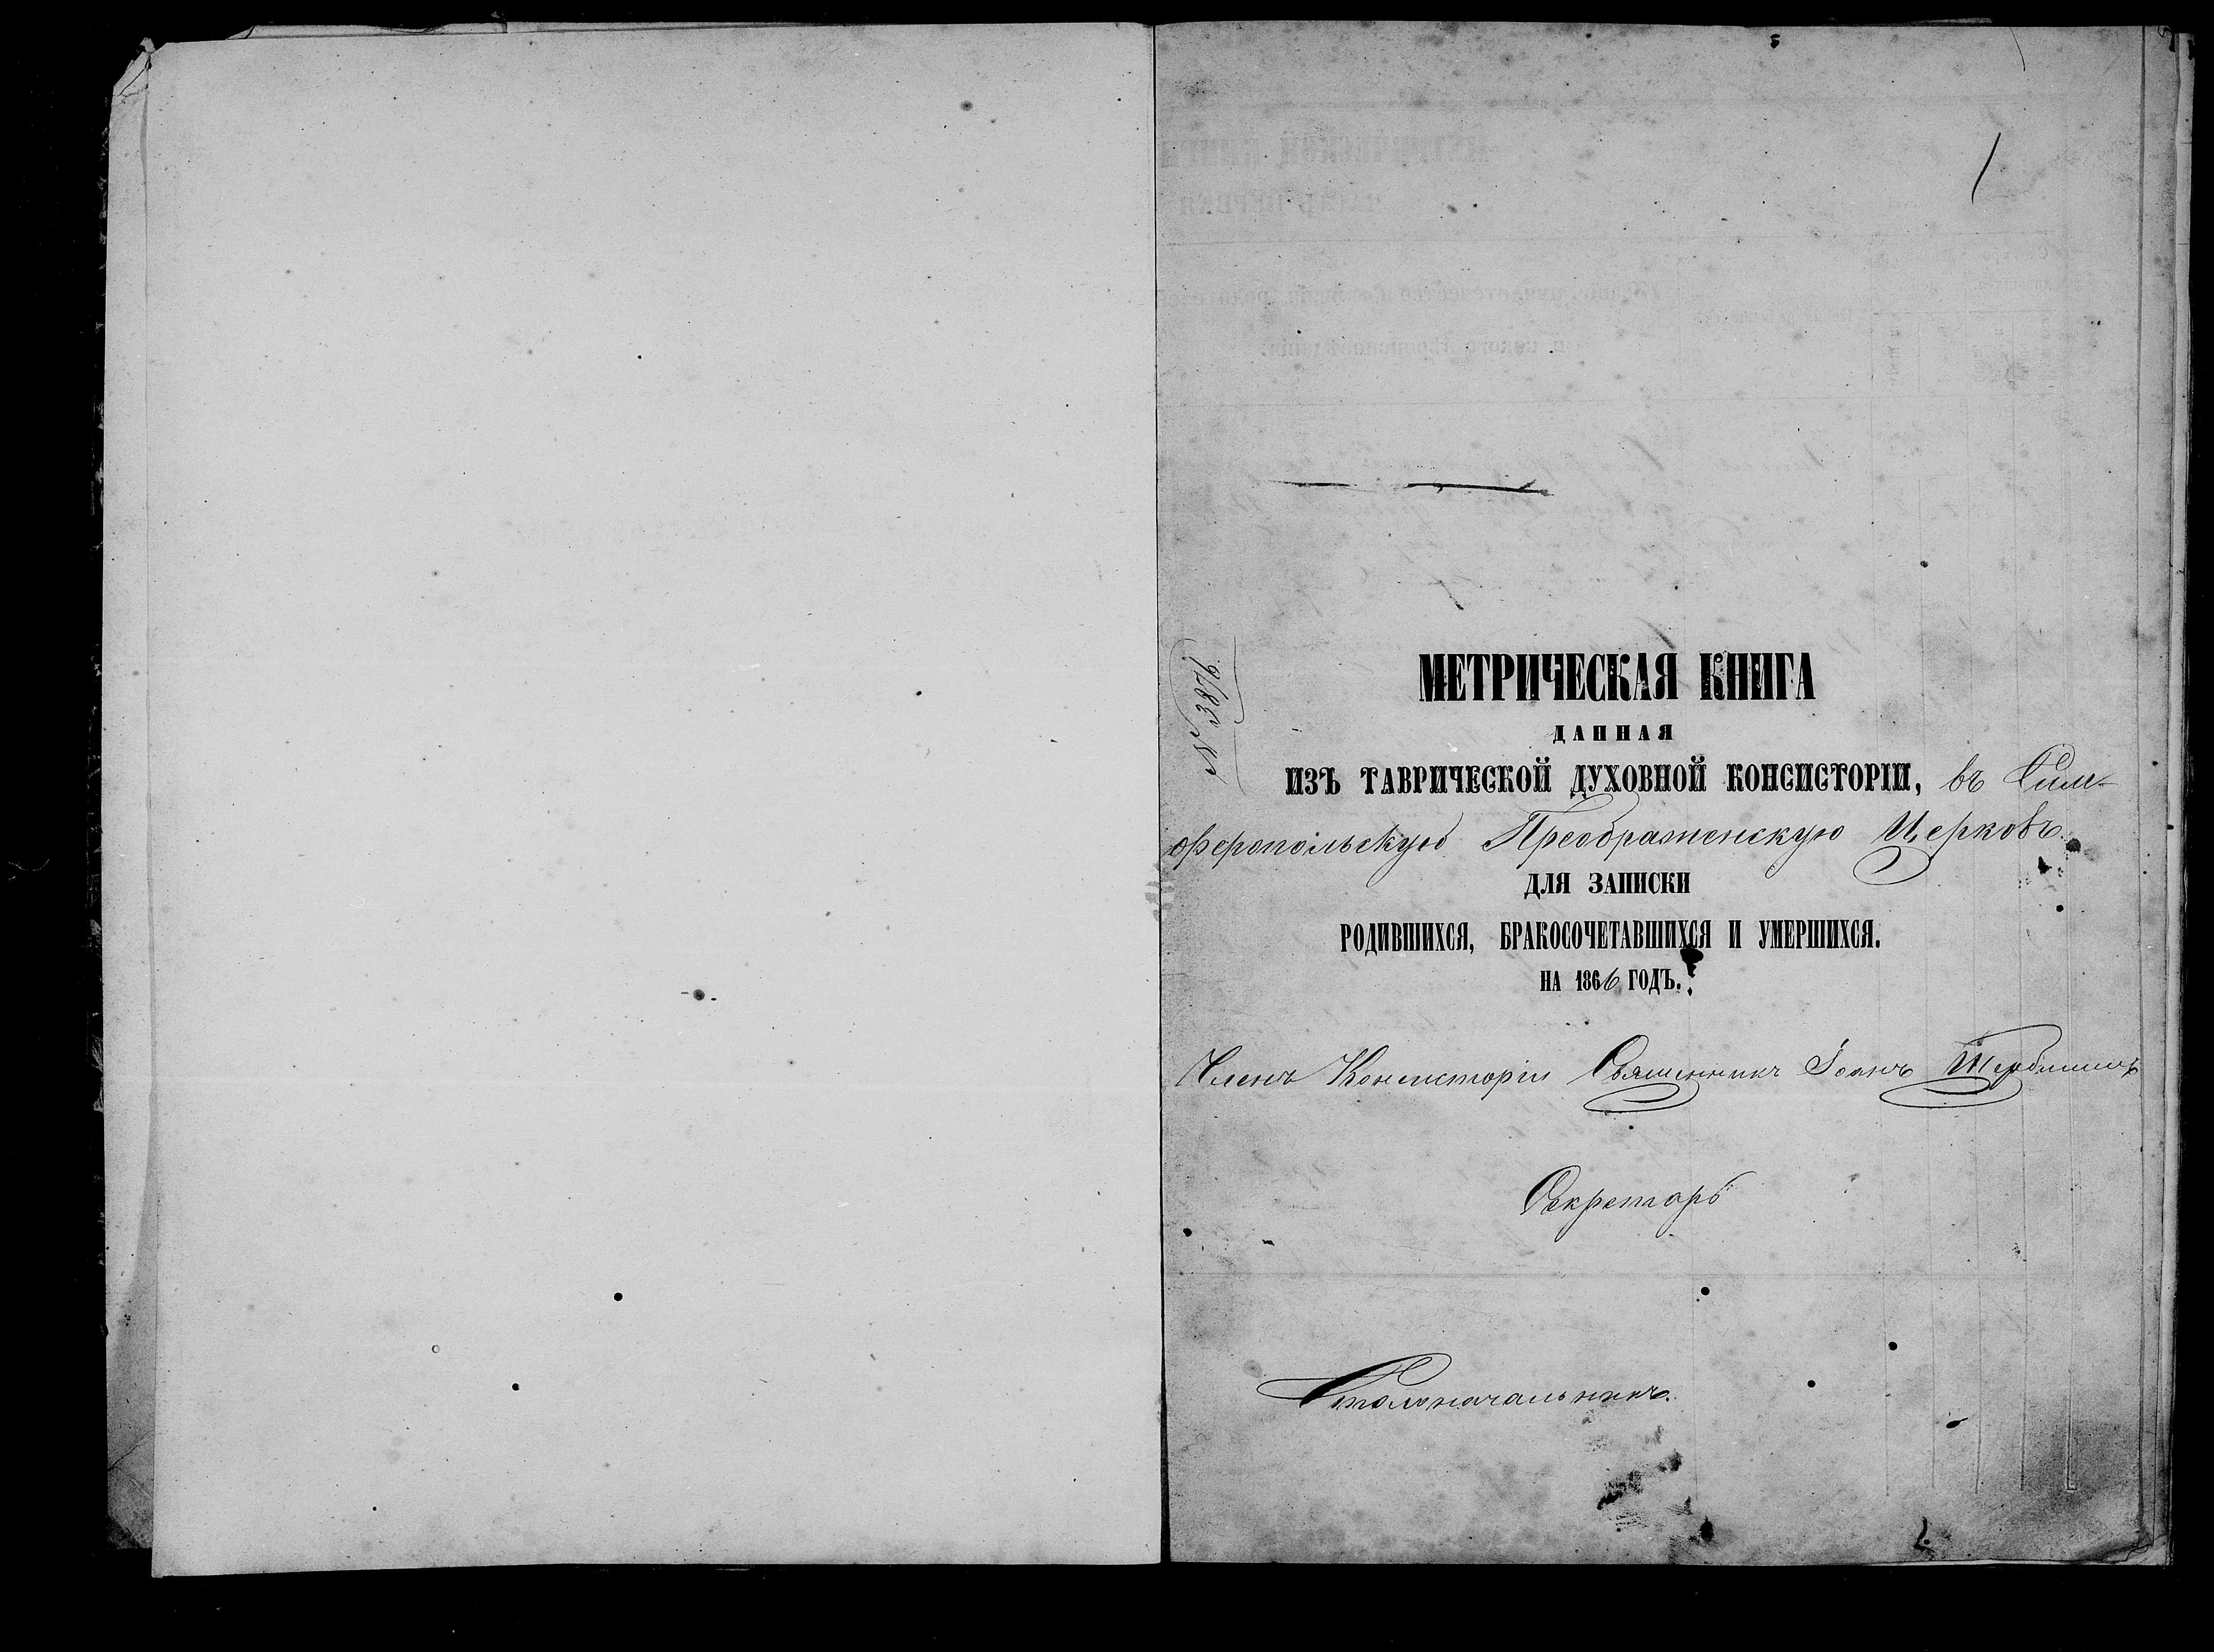 1
№ 3876.
МЕТРИЧЕСКАЯ КНИГА
ДАННАЯ
ИЗЪ ТАВРИЧЕСКОЙ ДУХОВНОЙ КОНСИСТОРІИ, въ Сим-
феропольскую Преображенскую Церковь.
ДЛЯ ЗАПИСКИ
РОДИВШИХСЯ, БРАКОСОЧЕТАВШИХСЯ И УМЕРШИХСЯ.
НА 1866 ГОДЪ.
Членъ Консисторіи Священникъ Іоаннъ
Секретарь
Столоначальникъ.